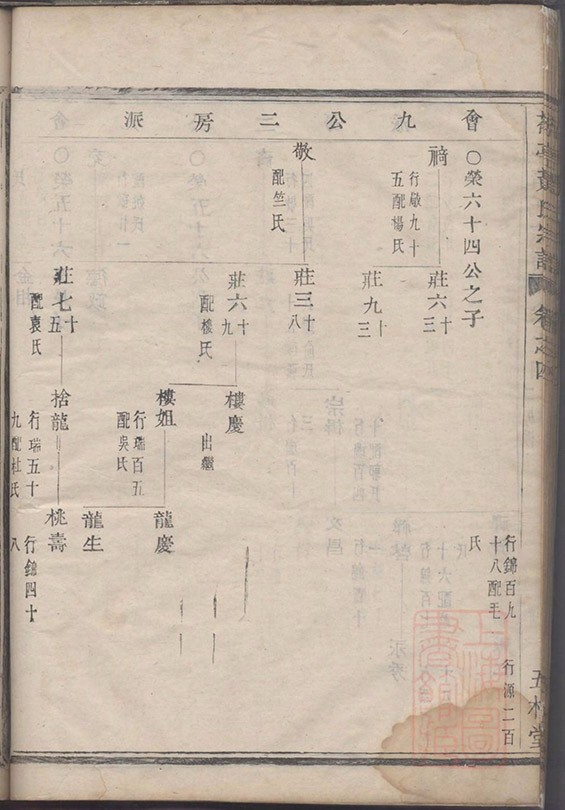 會九公二房派
○榮六十四公之子
行錦百九
十八配毛
氏
行源二百
禂
行敬九十
五配楊氏
莊六十三
莊九十三
敬
配竺氏
莊三十八
莊六十九
配樓氏
樓慶
出繼
樓姐
行瑞百五
配吳氏
龍慶
龍生
莊七十五
配袁氏
捨龍
行瑞五十
九配杜氏
桃壽
行錦四十
八
卷之四